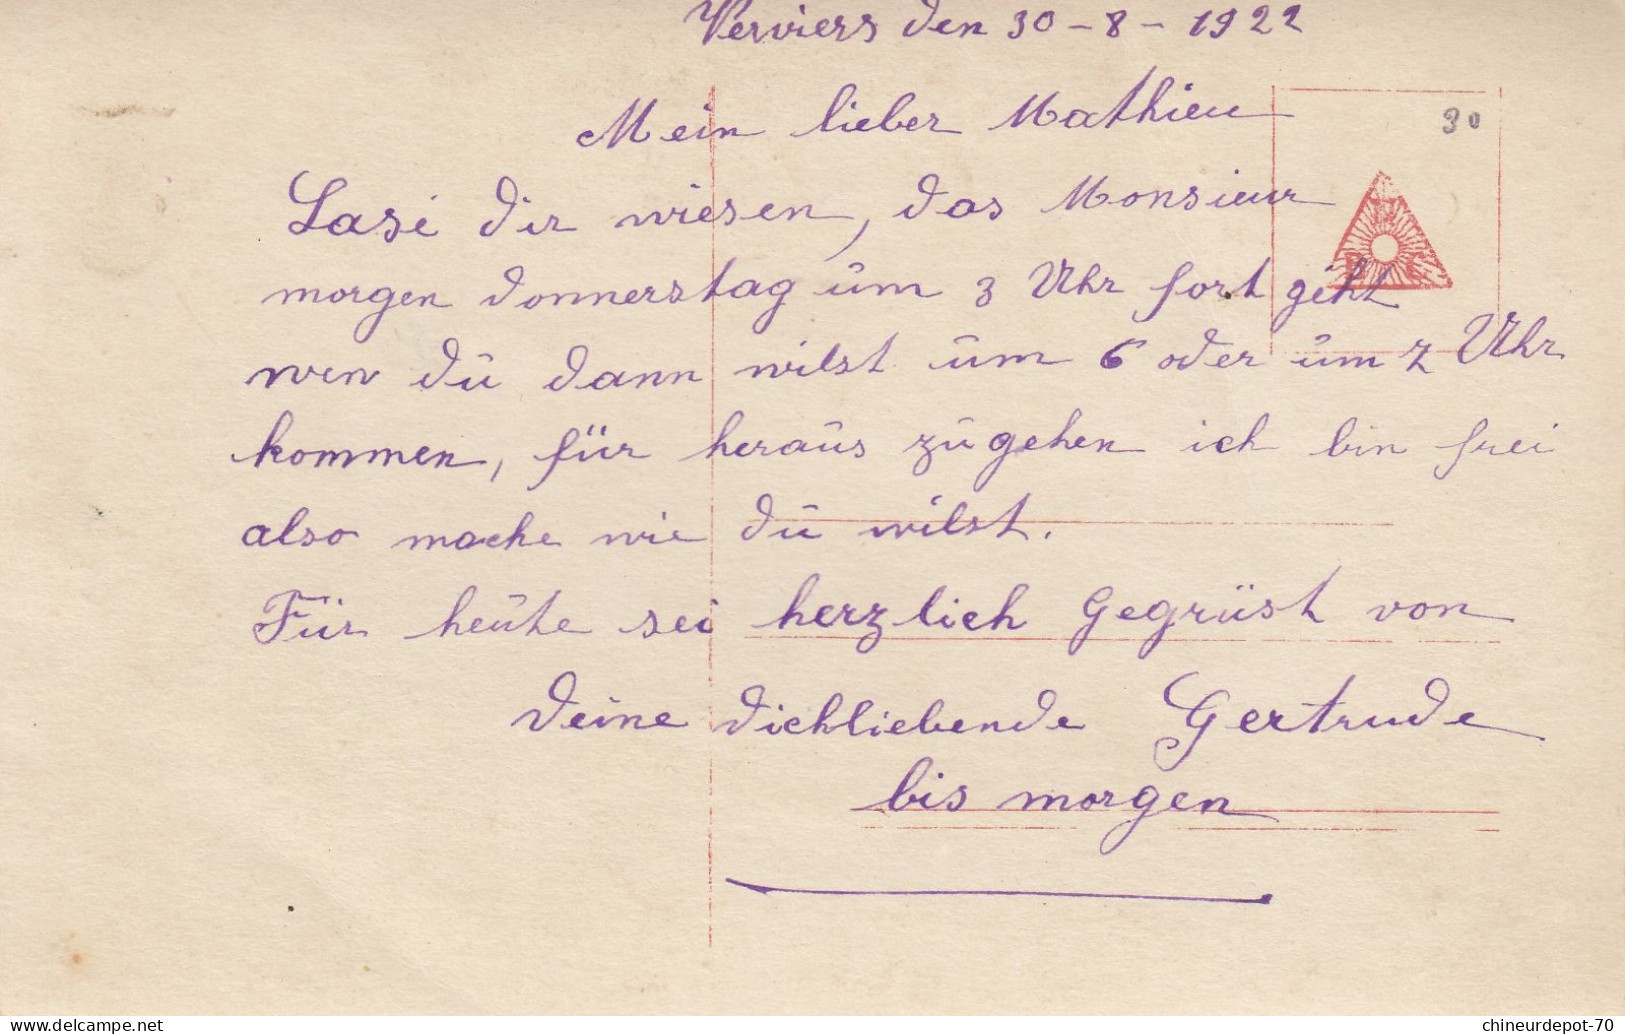 Verviers den 30-8-1922
30
Mein lieber Mathieu
Lase dir wiesen, das Monsieur
morgen donnerstag ūm 3 Uhr fort geht
wen dū dann wilst ūm 6 oder ūm 7 Uhr
kommen, für heraūs zūgehen ich bin frei
also mache wie dū wilst.
Für heūte sei herzlich Gegrüst von
deine dichliebende Gertrude
bis morgen
delcampe.net
chineurdepot-70